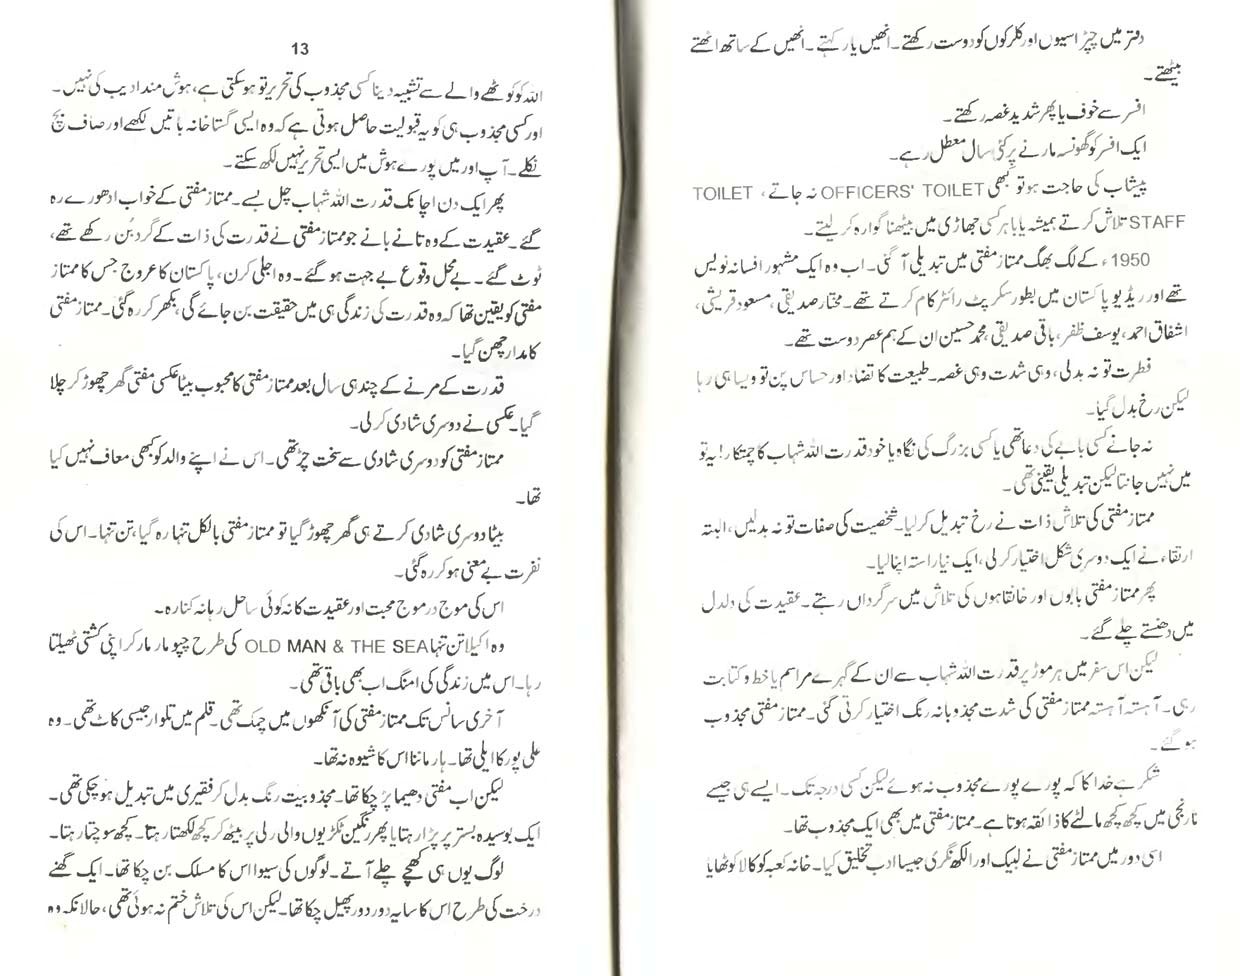 دفتر میں چپڑاسیوں اور کلرکوں کو دوست رکھتے۔ انھیں یار کہتے۔ انھیں کے ساتھ اٹھتے
بیٹھتے۔
افسر سے خوف یا پھر شدید غصہ رکھتے۔
ایک افسر کو گھونسہ مارنے پر کئی سال معطل رہے۔
پیشاب کی حاجت ہو تو کبھی OFFICERS' TOILET نہ جاتے، TOILET
STAFF تلاش کرتے ہمیشہ یا باہر کسی جھاڑی میں بیٹھنا گوارہ کر لیتے۔
1950ء کے لگ بھگ ممتاز مفتی میں تبدیلی آ گئی۔ اب وہ ایک مشہور افسانہ نویس
تھے اور ریڈیو پاکستان میں بطور سکرپٹ رائٹر کام کرتے تھے۔ مختار صدیقی، مسعود قریشی،
اشفاق احمد، یوسف ظفر، باقی صدیقی، محمد حسین ان کے ہم عصر دوست تھے۔
فطرت تو نہ بدلی، وہی شدت وہی غصہ۔ طبیعت کا تضاد اور حساس پن تو ویسا ہی رہا
لیکن رخ بدل گیا۔
نہ جانے کسی بابے کی دعا تھی یا کسی بزرگ کی نگاہ یا خود قدرت اللہ شہاب کا چمتکار! یہ تو
میں نہیں جانتا لیکن تبدیلی یقینی تھی۔
ممتاز مفتی کی تلاش ذات نے رخ تبدیل کر لیا۔ شخصیت کی صفات تو نہ بدلیں، البتہ
ارتقاء نے ایک دوسری شکل اختیار کر لی، ایک نیا راستہ اپنا لیا۔
پھر ممتاز مفتی بابوں اور خانقاہوں کی تلاش میں سرگرداں رہتے۔ عقیدت کی دلدل
میں دھنستے چلے گئے۔
لیکن اس سفر میں ہر موڑ پر قدرت اللہ شہاب سے ان کے گہرے مراسم یا خط و کتابت
رہی۔ آہستہ آہستہ ممتاز مفتی کی شدت مجذوبانہ رنگ اختیار کرتی گئی۔ ممتاز مفتی مجذوب
ہو گئے۔
شکر ہے خدا کا کہ پورے پورے مجذوب نہ ہوئے لیکن کسی درجہ تک۔ ایسے ہی جیسے
نارنجی میں کچھ کچھ مالٹے کا ذائقہ ہوتا ہے۔ ممتاز مفتی میں بھی ایک مجذوب تھا۔
اسی دور میں ممتاز مفتی نے لبیک اور الکھ نگری جیسا ادب تخلیق کیا۔ خانہ کعبہ کو کالا کوٹھا یا
13
اللہ کو کوٹھے والے سے تشبیہ دینا کسی مجذوب کی تحریر تو ہو سکتی ہے، ہوش مند ادیب کی نہیں۔
اور کسی مجذوب ہی کو یہ قبولیت حاصل ہوتی ہے کہ وہ ایسی گستاخانہ باتیں لکھے اور صاف بچ
نکلے۔ آپ اور میں پورے ہوش میں ایسی تحریر نہیں لکھ سکتے۔
پھر ایک دن اچانک قدرت اللہ شہاب چل بسے۔ ممتاز مفتی کے خواب ادھورے رہ
گئے۔ عقیدت کے وہ تانے بانے جو ممتاز مفتی نے قدرت کی ذات کے گرد بُن رکھے تھے،
ٹوٹ گئے۔ بے محل وقوع بے جہت ہو گئے۔ وہ اجلی کرن، پاکستان کا عروج جس کا ممتاز
مفتی کو یقین تھا کہ وہ قدرت کی زندگی ہی میں حقیقت بن جائے گی، بکھر کر رہ گئی۔ ممتاز مفتی
کا مدار چھن گیا۔
قدرت کے مرنے کے چند ہی سال بعد ممتاز مفتی کا محبوب بیٹا عکسی مفتی گھر چھوڑ کر چلا
گیا۔ عکسی نے دوسری شادی کر لی۔
ممتاز مفتی کو دوسری شادی سے سخت چڑ تھی۔ اس نے اپنے والد کو کبھی معاف نہیں کیا
تھا۔
بیٹا دوسری شادی کرتے ہی گھر چھوڑ گیا تو ممتاز مفتی بالکل تنہا رہ گیا، تن تنہا۔ اس کی
نفرت بے معنی ہو کر رہ گئی۔
اس کی موج در موج محبت اور عقیدت کا نہ کوئی ساحل رہا نہ کنارہ۔
وہ اکیلا تن تنہا OLD MAN & THE SEA کی طرح چپو مار مار کر اپنی کشتی ٹھیلتا
رہا۔ اس میں زندگی کی امنگ اب بھی باقی تھی۔
آخری سانس تک ممتاز مفتی کی آنکھوں میں چمک تھی۔ قلم میں تلوار جیسی کاٹ تھی۔ وہ
علی پور کا ایلی تھا۔ ہار ماننا اس کا شیوہ نہ تھا۔
لیکن اب مفتی دھیما پڑ چکا تھا۔ مجذوبیت رنگ بدل کر فقیری میں تبدیل ہو چکی تھی۔
ایک بوسیدہ بستر پر پڑا رہتا یا پھر رنگین ٹکڑیوں والی رلی پر بیٹھ کر کچھ لکھتا رہتا۔ کچھ سوچتا رہتا۔
لوگ یوں ہی کھچے چلے آتے۔ لوگوں کی سیوا اس کا مسلک بن چکا تھا۔ ایک گھنے
درخت کی طرح اس کا سایہ دور دور پھیل چکا تھا۔ لیکن اس کی تلاش ختم نہ ہوئی تھی، حالانکہ وہ